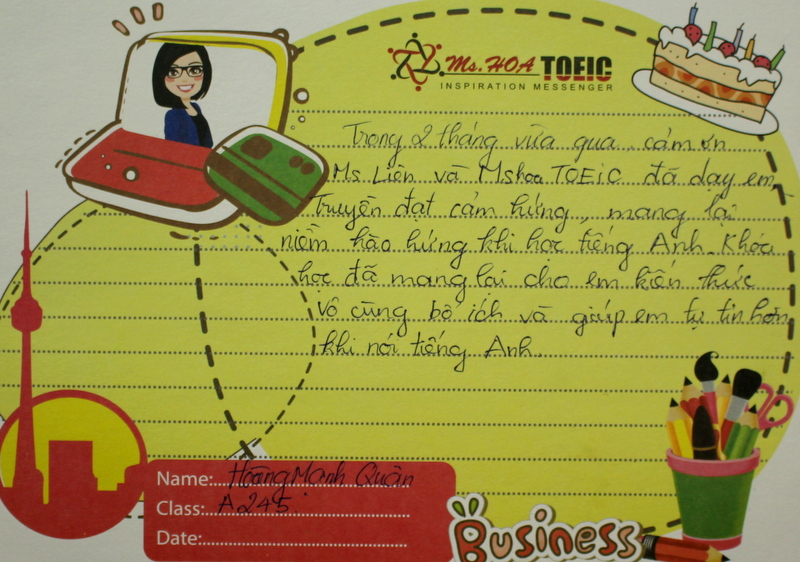 Ms. HOA TOEIC
INSPIRATION MESSENGER
Trong 2 tháng vừa qua, cảm ơn
Ms Liên và Mshoa TOEIC đã dạy em,
Truyền đạt cảm hứng, mang lại
niềm hào hứng khi học tiếng Anh. Khóa
học đã mang lại cho em kiến thức
vô cùng bổ ích và giúp em tự tin hơn
khi nói tiếng Anh.
Name: Hoàng Mạnh Quân
Class: A245
Date:
Business